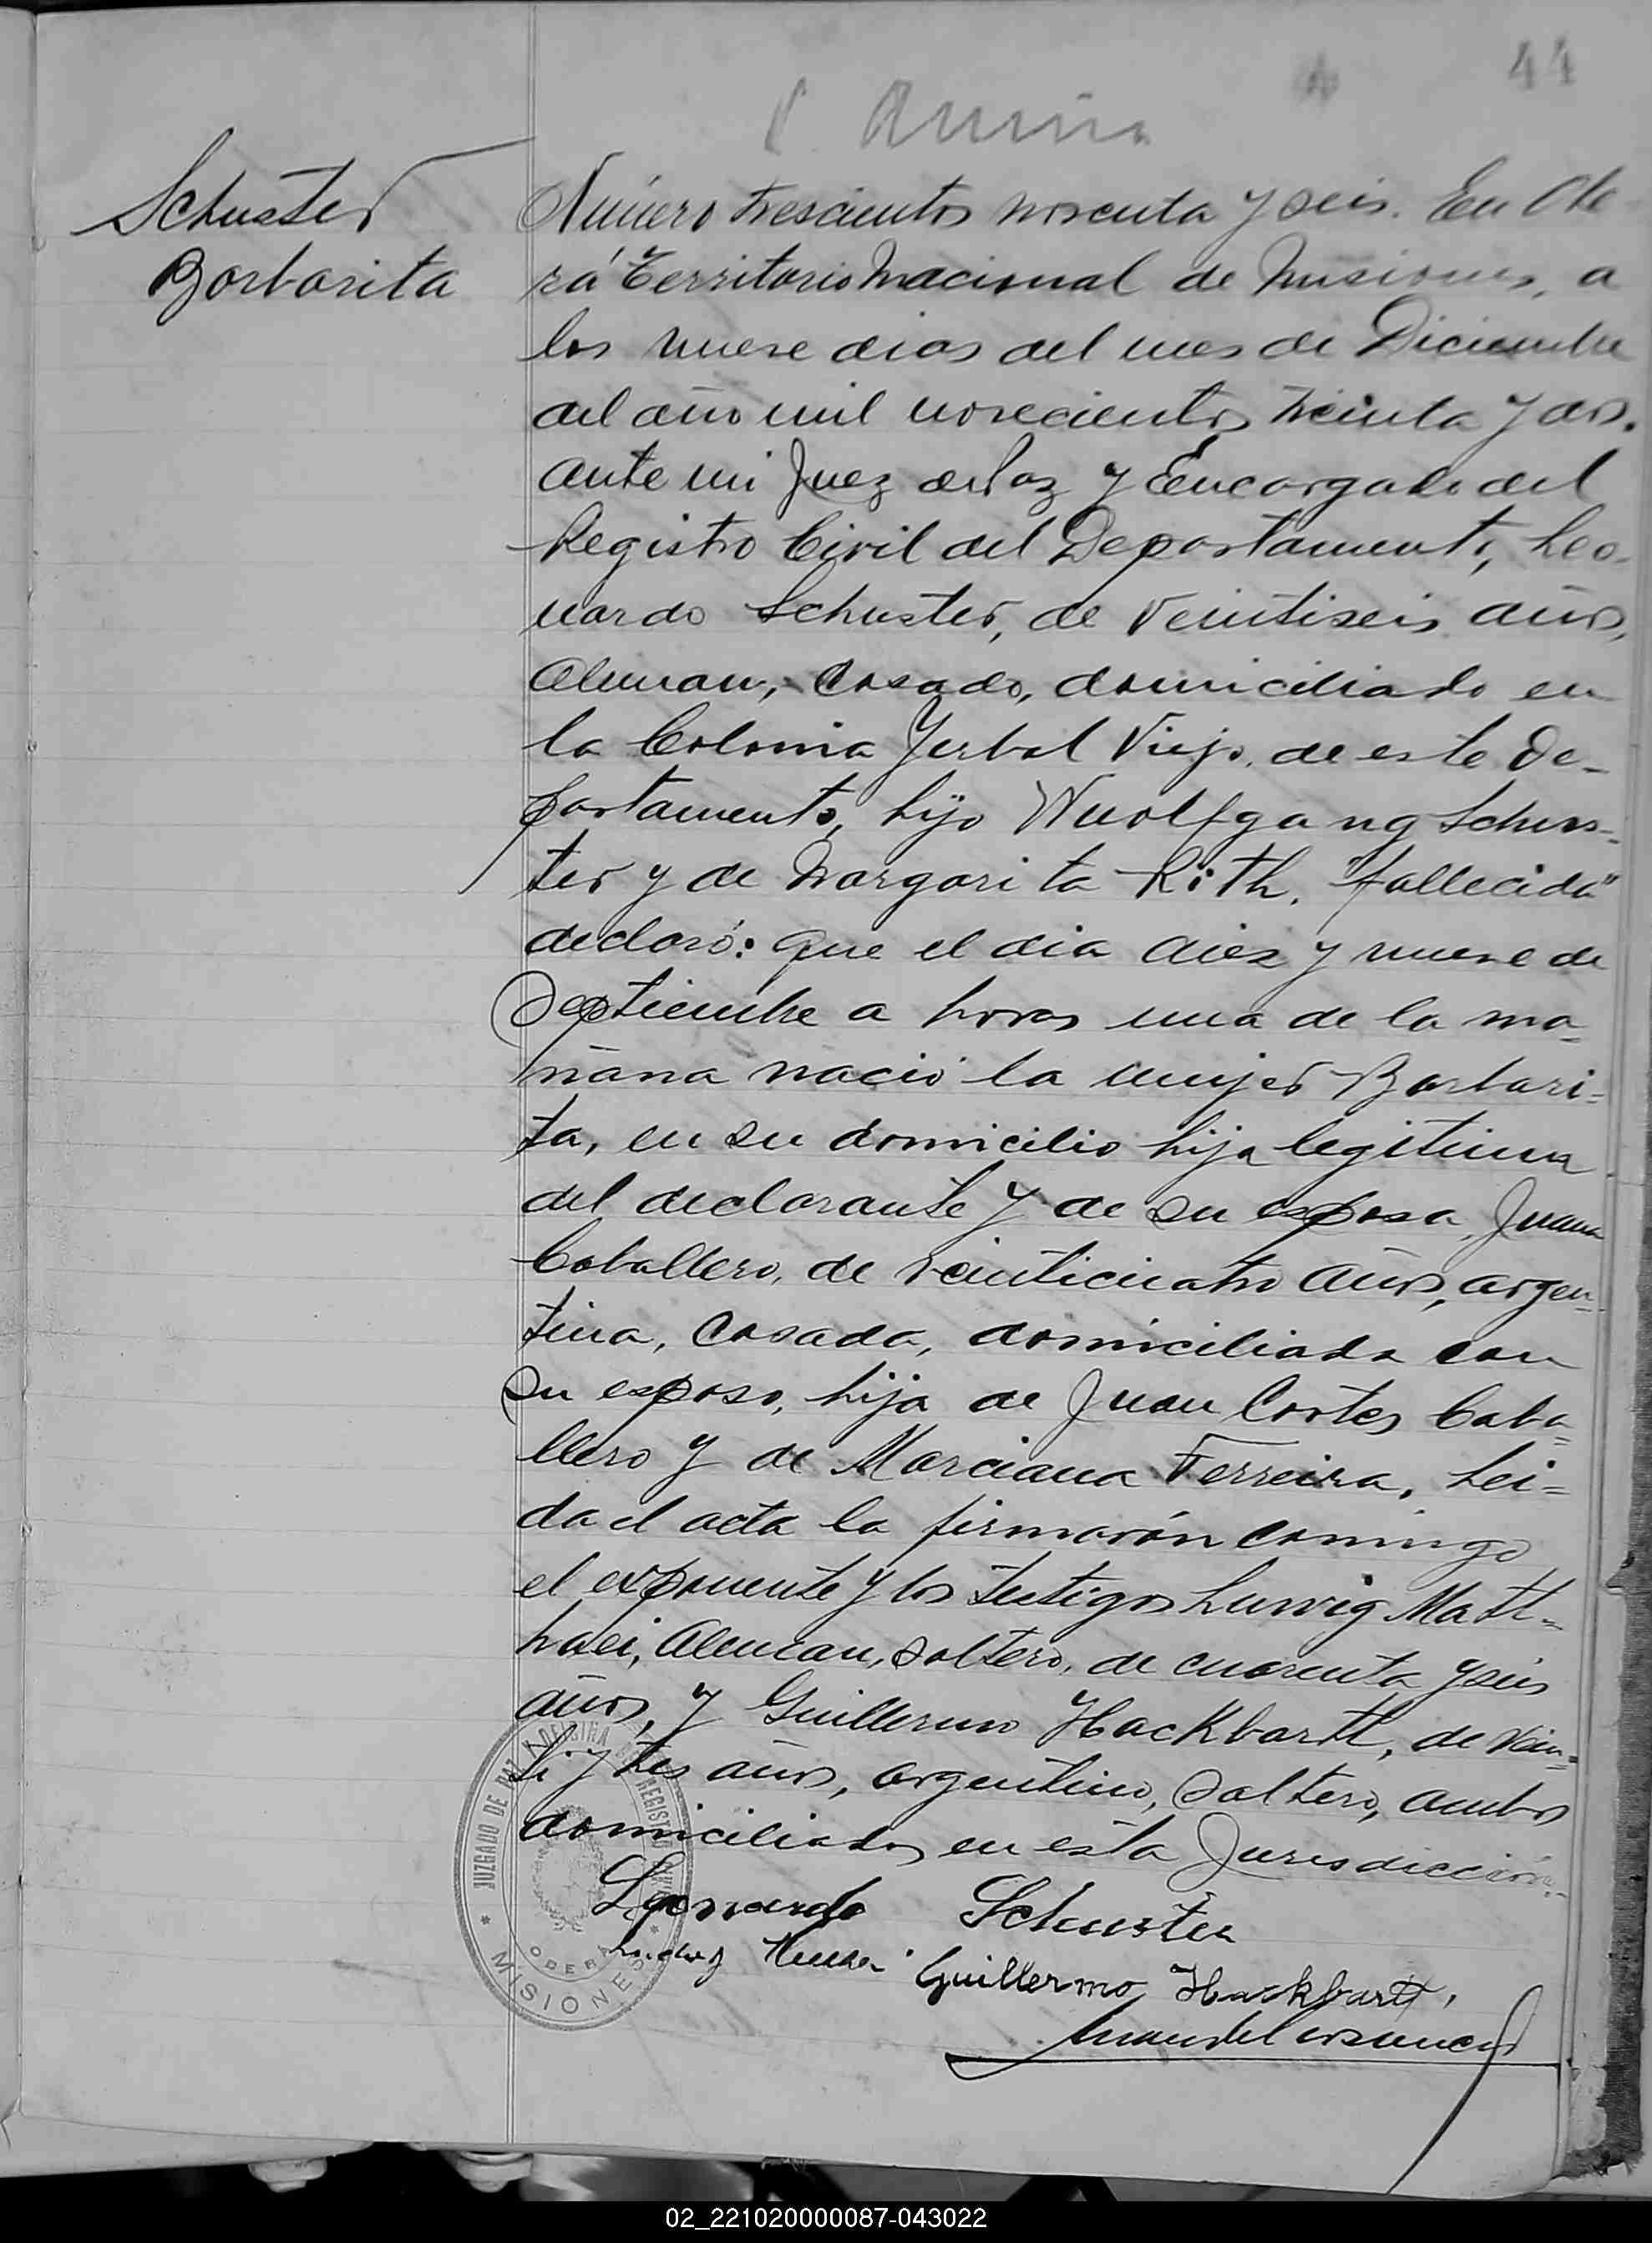 44
Schuster
Barbarita
Número trescientos noventa y seis. En Obe
rá Territorio Nacional de Misiones, a
los nueve dias del mes de Diciembre
del año mil novecientos treinta y dos.
ante mi Juez de Paz y Encargado del
Registro Civil del Departamento, Leo-
nardo Schuster, de veintiseis años,
Aleman, casado, domiciliado en
la Colonia Yerbal Viejo, de este De-
partamento, hijo Wuolfgang Schus-
ter y de Margarita Roth, "fallecida"
declaró: que el dia diez y nueve de
Septiembre a horas una de la ma=
ñana nació la mujer Barbari=
ta, en su domicilio hija legitima
del declarante y de su esposa, Juana
Caballero, de veinticuatro años, argen=
tina, casada, domiciliada con
su esposo, hija de Juan Cortes Caba=
llero y de Marciana Ferreira. Lei=
da el acta la firmarón conmigo
el exponente y los testigos Luwig Matt=
haei, Aleman, soltero, de cuarenta y seis
años, y Guillermo Hackbartt, de vein=
ti y tres años, argentino, soltero, ambos
domiciliados en esta Jurisdicción.-
Leonardo Schuster
Guillermo Hackbartt,
JUZGADO DE PAZ
REGISTRO CIVIL
OBERA
MISIONES
02_221020000087-043022